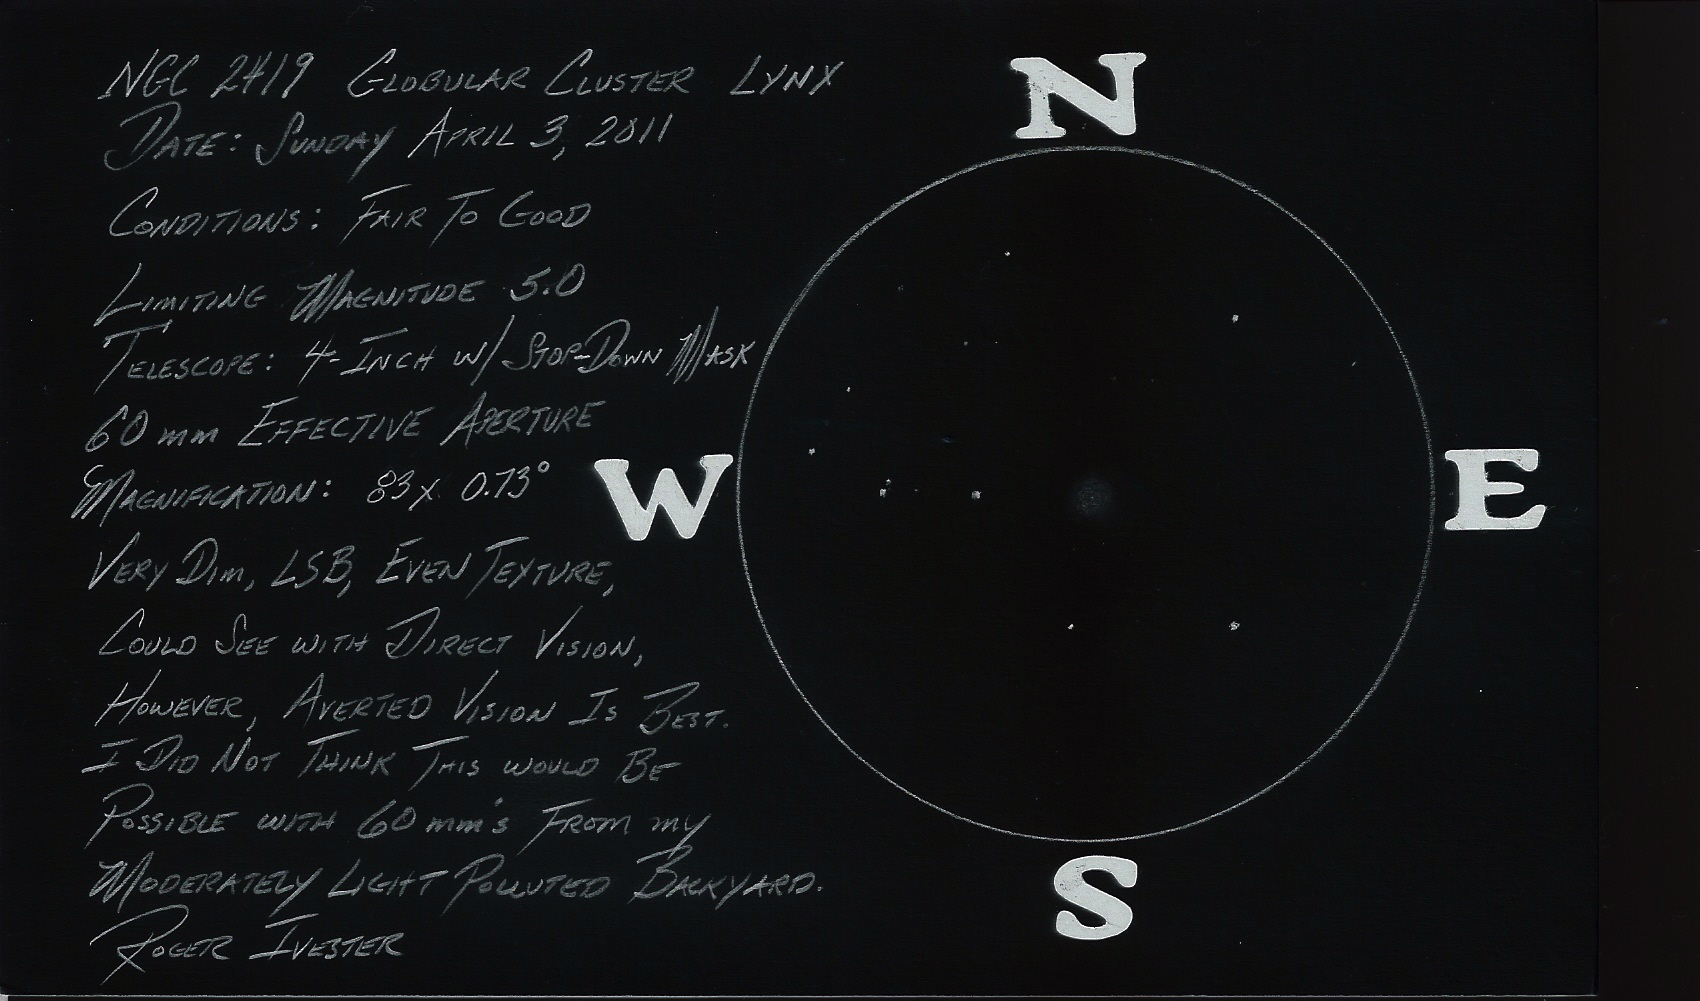 NGC 2419 GLOBULAR CLUSTER LYNX
DATE: SUNDAY APRIL 3, 2011
CONDITIONS: FAIR TO GOOD
LIMITING MAGNITUDE 5.0
TELESCOPE: 4-INCH W/ STOP-DOWN MASK
60mm EFFECTIVE APERTURE
MAGNIFICATION: 83x 0.73°
VERY DIM, LSB, EVEN TEXTURE,
COULD SEE WITH DIRECT VISION,
HOWEVER, AVERTED VISION IS BEST.
I DID NOT THINK THIS WOULD BE
POSSIBLE WITH 60mm's FROM MY
MODERATELY LIGHT POLLUTED BACKYARD.
ROGER IVESTER
N
W
E
S